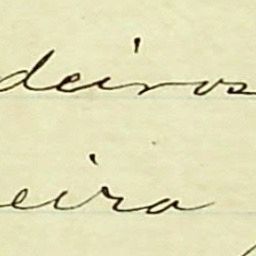 deiros
eira